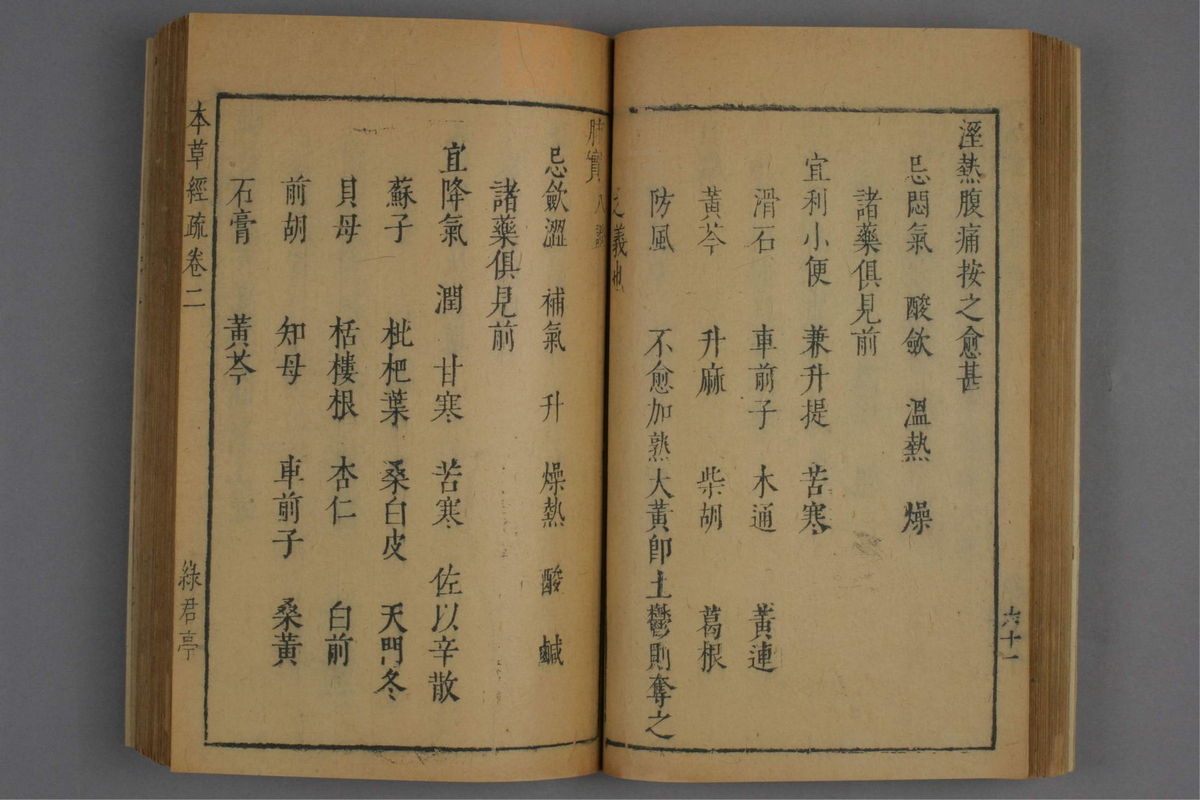 溼熱腹痛按之愈甚
忌悶氣 酸斂 溫熱 燥
諸藥俱見前
宜利小便 兼升提 苦寒
滑石 車前子 木通 黃連
黃芩 升麻 柴胡 葛根
防風 不愈加熟大黃卽土鬱則奪之
之義也
六十一
肺實 八證
忌斂澀 補氣 升 燥熱 酸 鹹
諸藥俱見前
宜降氣 潤 甘寒 苦寒 佐以辛散
蘇子 枇杷葉 桑白皮 天門冬
貝母 栝樓根 杏仁 白前
前胡 知母 車前子 桑黃
石膏 黃芩
本草經疏卷二
綠君亭